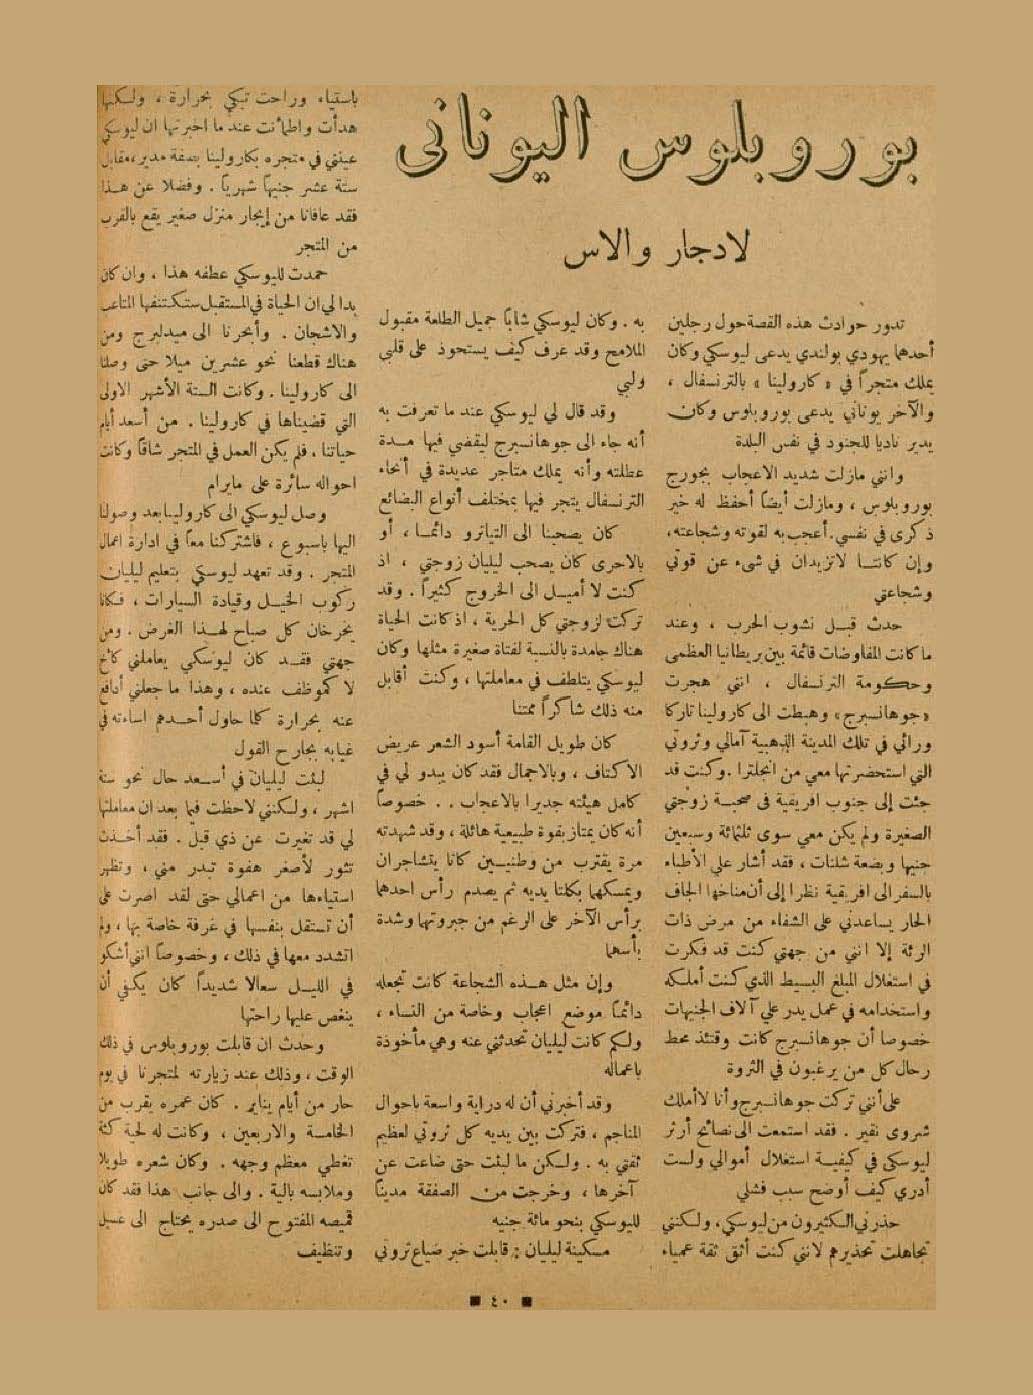 بوروبلوس اليونانى
لادجار والاس
تدور حوادث هذه القصة حول رجلين
أحدهما يهودي بولندي يدعى ليوسكي وكان
يملك متجراً في « كارولينا » بالترنسفال ،
والآخر يوناني يدعى بوروبلوس وكان
يدير ناديا للجنود في نفس البلدة
وانني مازلت شديد الاعجاب بجورج
بوروبلوس ، ومازلت أيضاً أحفظ له خير
ذكرى في نفسي. أعجب به لقوته وشجاعته،
وإن كانتا لا تزيدان في شىء عن قوتي
وشجاعتي
حدث قبل نشوب الحرب ، وعند
ما كانت المفاوضات قائمة بين بريطانيا العظمى
وحكومة الترنسفال ، انني هجرت
«جوهانسبرج» وهبطت الى كارولينا تاركا
ورائي في تلك المدينة الذهبية آمالي وثروتي
التي استحضرتها معي من انجلترا . وكنت قد
جئت إلى جنوب افريقية فى صحبة زوجتي
الصغيرة ولم يكن معي سوى ثلثمائة وسبعين
جنيها وبضعة شلنات ، فقد أشار علي الأطباء
بالسفر الى افريقية نظرا إلى أن مناخها الجاف
الحار يساعدني على الشفاء من مرض ذات
الرئة إلا انني من جهتي كنت قد فكرت
في استغلال المبلغ البسيط الذي كنت أملكه
واستخدامه في عمل يدر علي آلاف الجنيهات
خصوصا أن جوهانسبرج كانت وقتئذ محط
رحال كل من يرغبون في الثروة
على أنني تركت جوهانسبرج وأنا لا أملك
شروى نقير . فقد استمعت الى نصائح أرثر
ليوسكي في كيفية استغلال أموالي ولست
أدري كيف أوضح سبب فشلي
حذرني الكثيرون من ليوسكي، ولكنني
تجاهلت تحذيرهم لانني كنت أثق ثقة عمياء
به . وكان ليوسكي شابا جميل الطلعة مقبول
الملامح وقد عرف كيف يستحوذ على قلبي
ولبي
وقد قال لي ليوسكي عند ما تعرفت به
أنه جاء الى جوهانسبرج ليقضي فيها مدة
عطلته وأنه يملك متاجر عديدة في أنحاء
الترنسفال يتجر فيها بمختلف أنواع البضائع
كان يصحبنا الى التياترو دائما ، أو
بالاحرى كان يصحب ليليان زوجتي ، اذ
كنت لا أميل الى الخروج كثيراً . وقد
تركت لزوجتي كل الحرية ، اذ كانت الحياة
هناك جامدة بالنسبة لفتاة صغيرة مثلها وكان
ليوسكي يتلطف في معاملتها ، وكنت أقابل
منه ذلك شاكراً ممتنا
كان طويل القامة أسود الشعر عريض
الاكتاف ، وبالاجمال فقد كان يبدو لي في
كامل هيئته جديرا بالاعجاب . . خصوصاً
أنه كان يمتاز بقوة طبيعية هائلة ، وقد شهدته
مرة يقترب من وطنيين كانا يتشاجران
ويمسكهما بكلتا يديه ثم يصدم رأس احدهما
برأس الآخر على الرغم من جبروتهما وشدة
بأسهما
وإن مثل هذه الشجاعة كانت تجعله
دائماً موضع اعجاب وخاصة من النساء ،
ولكم كانت ليليان تحدثني عنه وهي مأخوذة
باعماله
وقد أخبرني أن له دراية واسعة باحوال
المناجم ، فتركت بين يديه كل ثروتي لعظيم
ثقتي به . ولكن ما لبثت حتى ضاعت عن
آخرها ، وخرجت من الصفقة مدينا
لليوسكي بنحو مائة جنيه
مسكينة ليليان : قابلت خبر ضياع ثروتي
باستياء وراحت تبكي بحرارة ، ولكنها
هدأت واطمأنت عند ما اخبرتها ان ليوسكي
عينني في متجره بكارولينا بصفة مدير،مقابل
ستة عشر جنيها شهرياً . وفضلا عن هذا
فقد عافانا من إيجار منزل صغير يقع بالقرب
من المتجر
حمدت لليوسكي عطفه هذا ، وان كان
بدا لي ان الحياة في المستقبل ستكتنفها المتاعب
والاشجان . وأبحرنا الى ميدلبرج ومن
هناك قطعنا نحو عشرين ميلا حتى وصلنا
الى كارولينا . وكانت الستة الأشهر الاولى
التي قضيناها في كارولينا . من أسعد أيام
حياتنا ، فلم يكن العمل في المتجر شاقا وكانت
احواله سائرة على مايرام
وصل ليوسكي الى كارولينا بعد وصولنا
اليها باسبوع ، فاشتركنا معاً في ادارة اعمال
المتجر . وقد تعهد ليوسكي بتعليم ليليان
ركوب الخيل وقيادة السيارات ، فكانا
يخرخان كل صباح لهذا الغرض . ومن
جهتي فقد كان ليوسكي يعاملني كاخ
لا كموظف عنده ، وهذا ما جعلني أدافع
عنه بحرارة كلما حاول أحدهم اساءته في
غيابه بجارح القول
لبثت ليليان في أسعد حال نحو ستة
اشهر ، ولكنني لاحظت فيما بعد ان معاملتها
لي قد تغيرت عن ذي قبل . فقد أخذت
تثور لأصغر هفوة تبدر مني ، وتظهر
استياءها من اعمالي حتى لقد اصرت على
أن تستقل بنفسها في غرفة خاصة بها ، ولم
اتشدد معها في ذلك ، وخصوصاً انني أشكو
في الليل سعالا شديداً كان يكفي أن
ينغص عليها راحتها
وحدث ان قابلت بوروبلوس في ذلك
الوقت ، وذلك عند زيارته لمتجرنا في يوم
حار من أيام يناير . كان عمره يقرب من
الخامسة والاربعين ، وكانت له لحية كثة
تغطي معظم وجهه . وكان شعره طويلا
وملابسه بالية . والى جانب هذا فقد كان
قميصه المفتوح الى صدره يحتاج الى غسيل
وتنظيف
■ ٤٠ ■